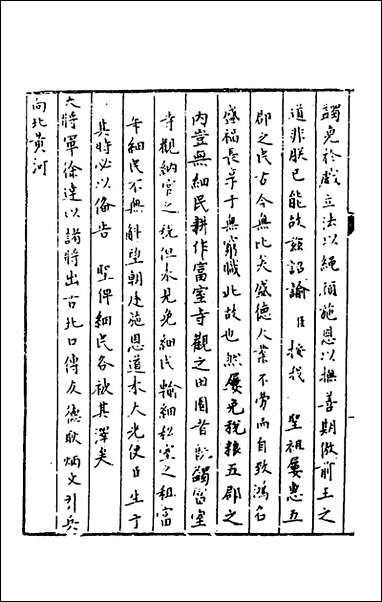 蠲免於戲立法以繩頑施恩以撫善期倣前王之
道非朕已能故茲詔諭 臣 按我 聖祖屢惠五
郡之民古今無比矣盛德大業不勞而自致鴻名
盛福長享于無窮職此故也然屢免稅粮五郡之
內豈無細民耕作富室寺觀之田園者歟蠲富室
寺觀納官之稅但未見免細民輸細私室之租富
年細民不無斛望朝廷施恩道未大光使臣生于
其時必以偹告 聖俾細民各被其澤矣
大將軍徐達以諸將出古北口傅友德耿炳文引兵
向北黃河